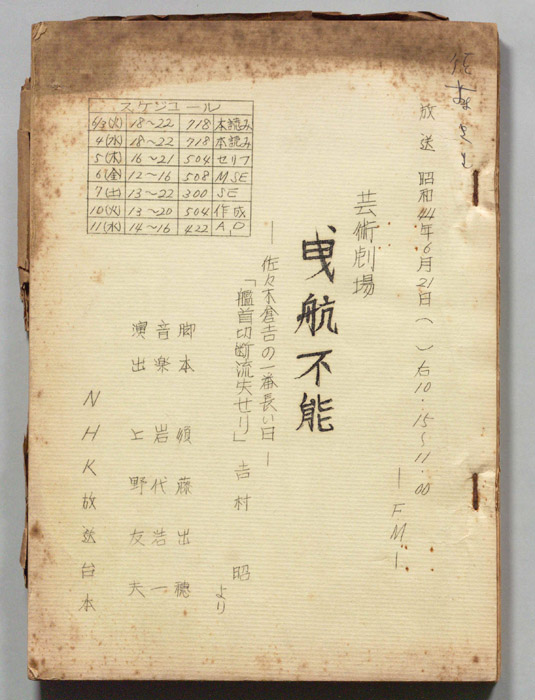 放送 昭和44年6月21日( )后10.15~11.00
―FM―
芸術劇場
曳航不能
―佐々木倉吉の一番長い日―
「艦首切断流失せり」吉村 昭 より
脚本 須藤出穂
音楽 岩代浩一
演出 上野友夫
NHK放送台本
スケジュール
6/3(火) 18~22 718 本読み
4(水) 18~22 718 本読み
5(木) 16~21 504 セリフ
6(金) 12~16 508 M SE
7(土) 13~22 300 SE
10(火) 13~20 504 作成
11(水) 14~16 422 A,D